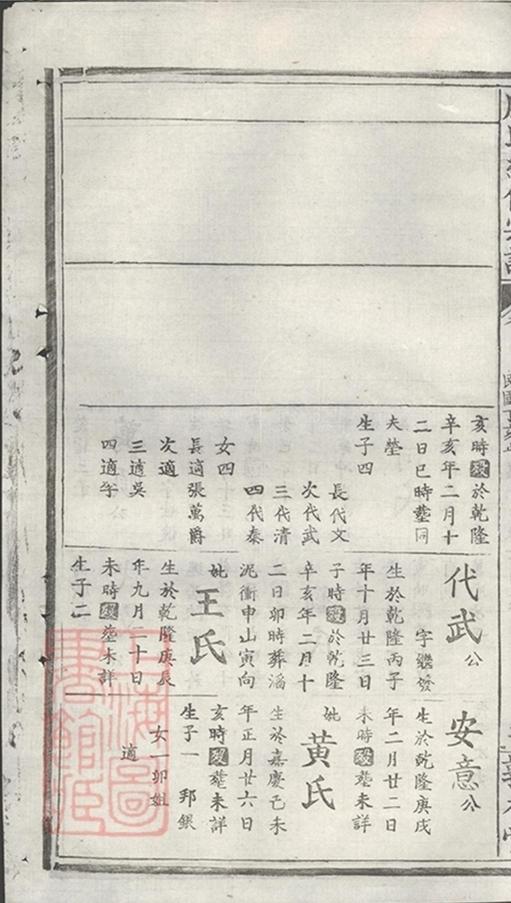 亥時殁於乾隆
辛亥年二月十
二日巳時塟同
夫塋
生子四
長代文
次代武
三代清
四代秦
女四
長適張萬爵
次適
三適吳
四適李
代武公
字繼發
生於乾隆丙子
年十月廿三日
子時殁於乾隆
辛亥年二月十
二日卯時葬滔
泥衝申山寅向
妣王氏
生於乾隆庚辰
年九月二十日
未時殁塟未詳
生子二
安意公
生於乾隆庚戌
年二月廿二日
未時殁塟未詳
妣黃氏
生於嘉慶己未
年正月廿六日
亥時殁塟未詳
生子一 邦銀
女一卯姐
適
上海圖
書館藏